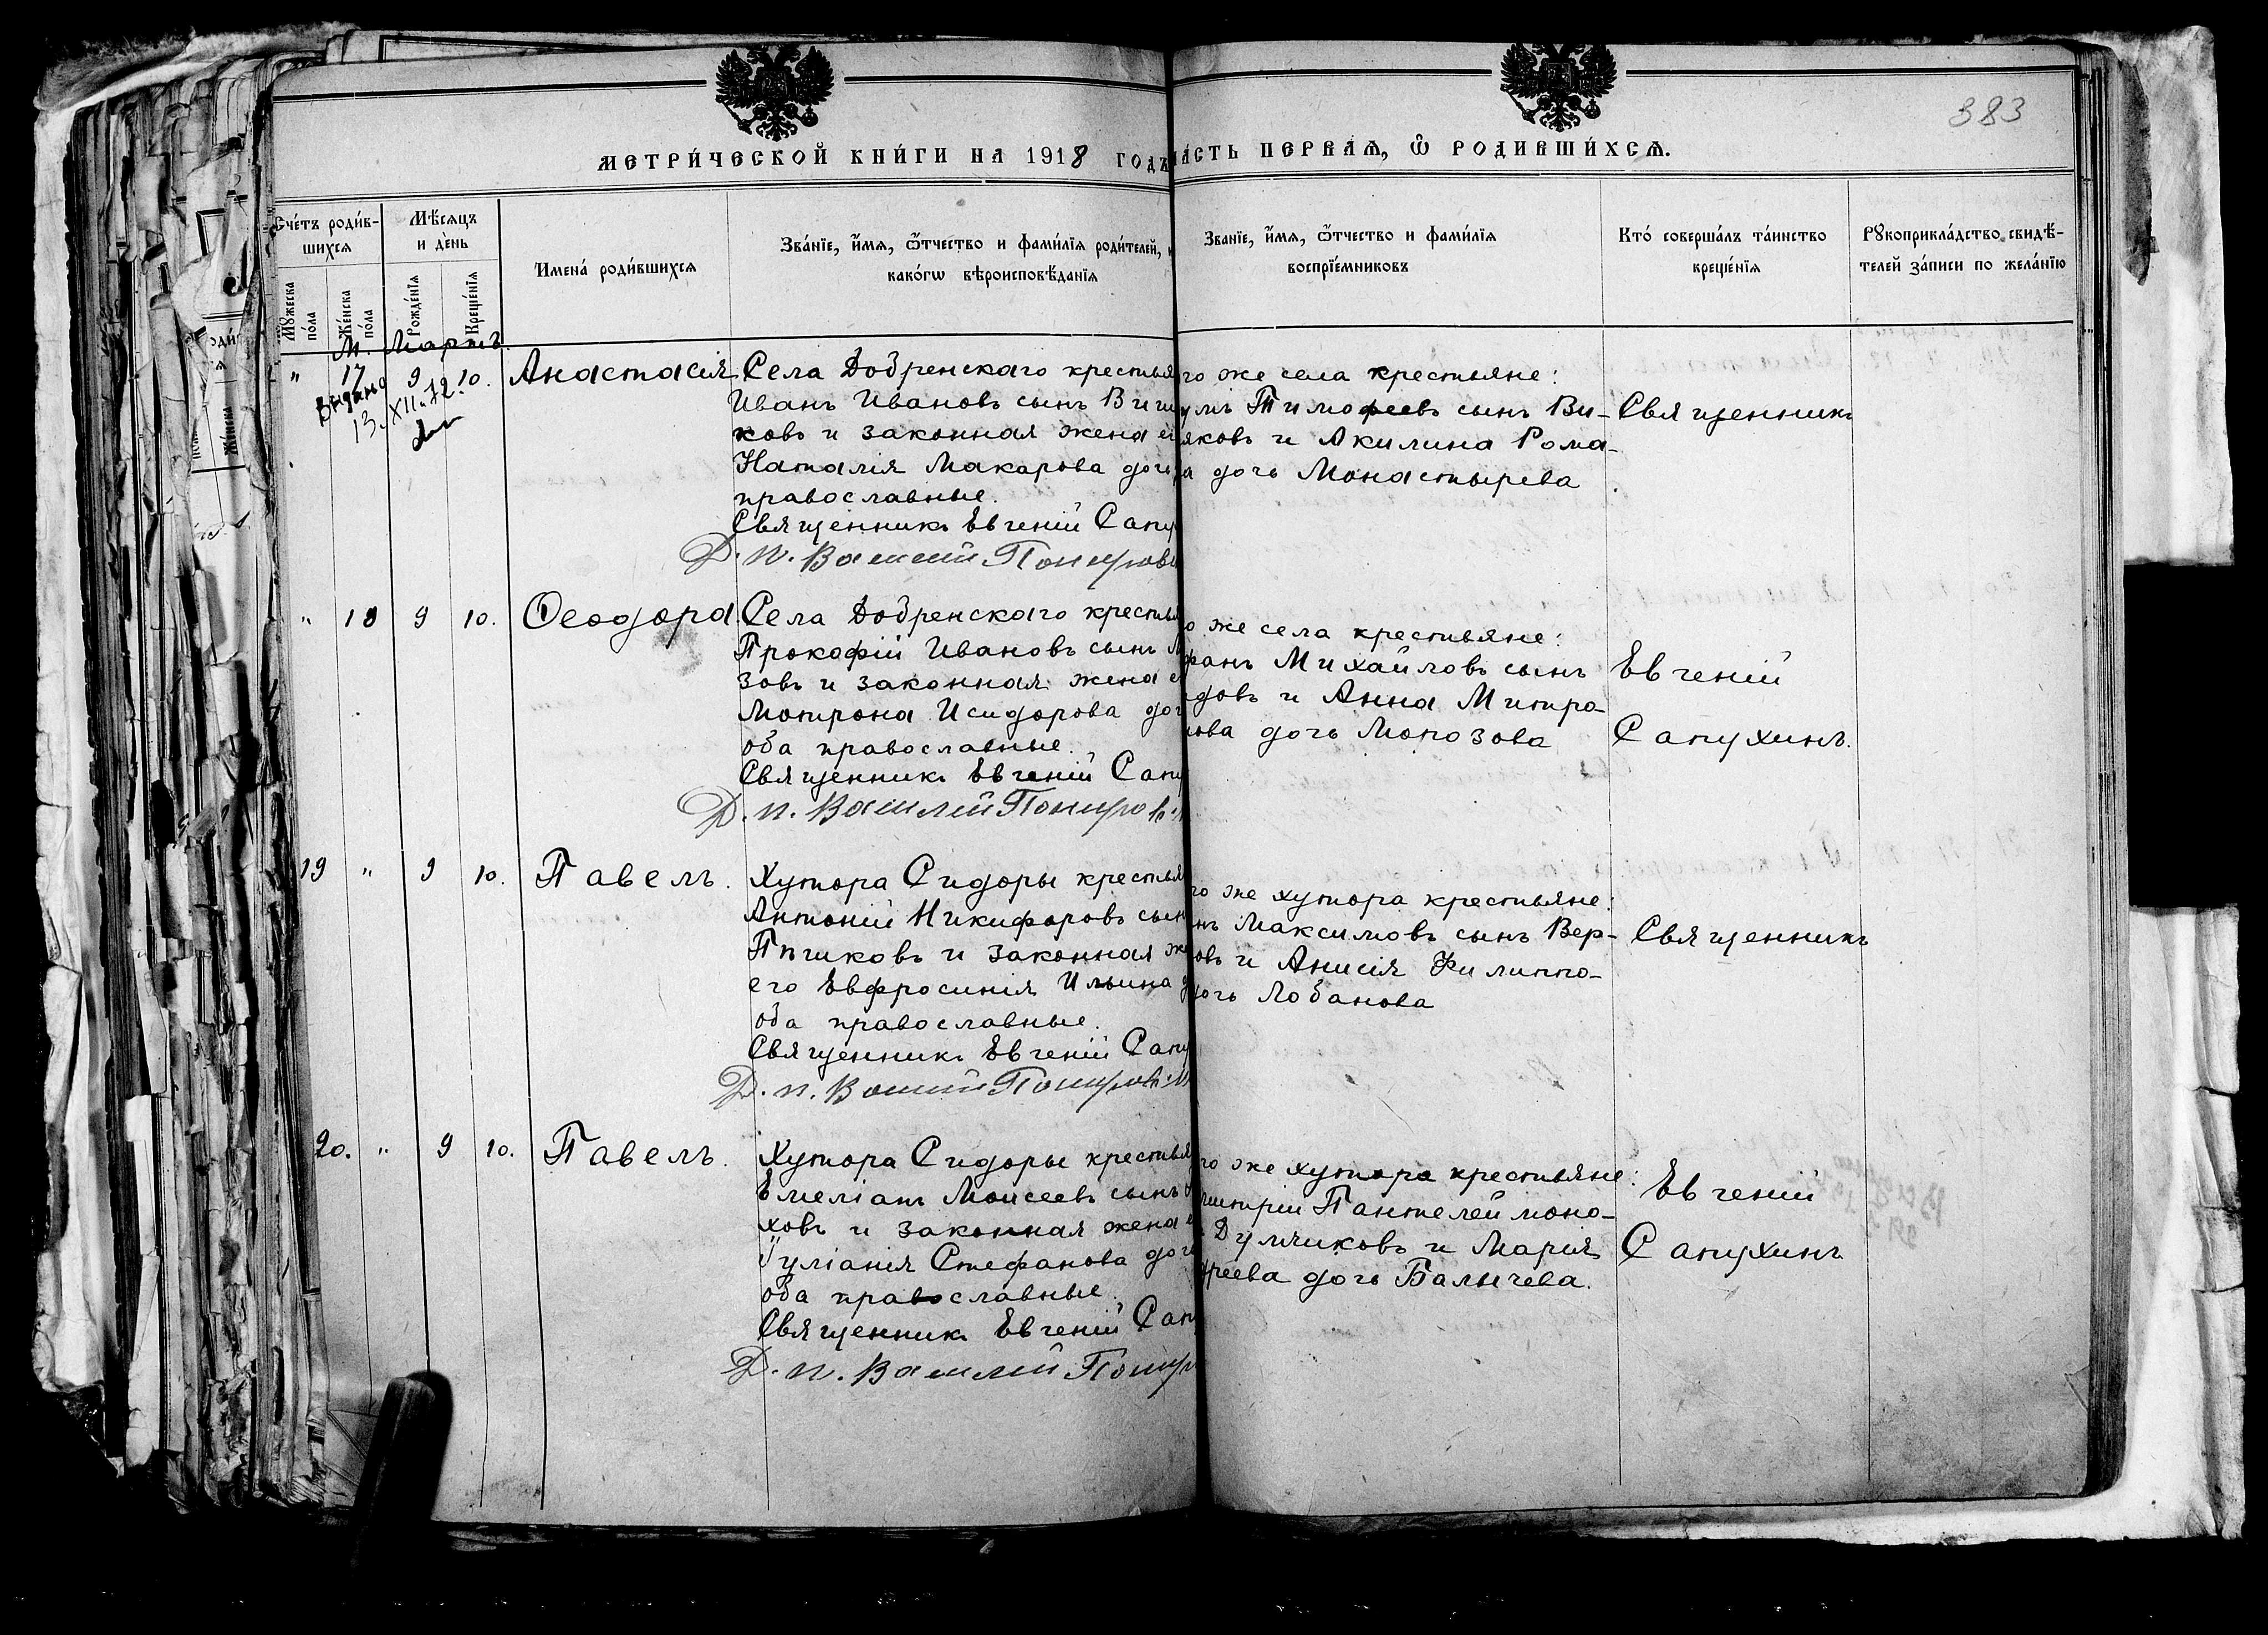 383
МЕТРИ́ЧЕСКОЙ КНИ́ГИ НА 1918 ГОДЪ
ЧА́СТЬ ПЕРВАѦ, Ѡ҆ РОДИВШИ́ХСѦ.
Сче́тъ роди́в-
шихсѧ
Мꙋ́жеска
по́ла
Же́нска
по́ла
Мѣ́сѧцъ
и де́нь
Рожде́нїѧ
Креще́нїѧ
И҆мена́ роди́вшихсѧ
Зва́нїе, и҆́мѧ, ѻ҆́тчество и фами́лїѧ роди́телей, и
како́гѡ вѣроисповѣ́данїѧ
Званїе, и҆́мѧ, ѻ҆́тчество и фами́лїѧ
воспрїе́мниковъ
Кто́ соверша́лъ та́инство
креще́нїѧ
Рꙋкоприкла́дство свидѣ́-
телей за́писи по жела́нїю
М. Мартъ.
" 17 9 10. Анастасія
Выдано
13.XII.72.
Села Добренскаго крестья
Иванъ Ивановъ сынъ Виш
ковъ и законная жена ег
Наталія Макарова дочь
православные.
Священникъ Евгеній Сапу
Д. п. Василій
го же села крестьяне:
умъ Тимофеевъ сынъ Ви-
яковъ и Акилина Рома-
а дочь Монастырева
Священникъ
" 18 9 10. Ѳеодора
Села Добренскаго крестья
Прокофій Ивановъ сынъ М
зовъ и законная жена е
Матрона Исидорова доч
оба православные.
Священникъ Евгеній Сапу
Д. п. Василій
о же села крестьяне:
фанъ Михайловъ сынъ
довъ и Анна Митро-
ова дочь Морозова
Евгеній
Сапухинъ.
19 " 9 10. Павелъ.
Хутора Сидоры крестья
Антоній Никифоровъ сын
и законная же
его Евфросинія Ильина д
оба православные.
Священникъ Евгеній Сапу
Д. п. Василій
го же хутора крестьяне:
нъ Максимовъ сынъ Вер-
овъ и Анисія Филиппо-
дочь Лобанова
Священникъ
20. " 9 10. Павелъ.
Хутора Сидоры крестья
Емеліанъ Моисеевъ сынъ
ховъ и законная жена е
Іуліанія Стефанова доч
оба православные.
Священникъ Евгеній Сап
Д. п. Василій
го же хутора крестьяне:
митрій Пантелеймоно-
Думчиковъ и Марія
дреева дочь Балычева.
Евгеній
Сапухинъ